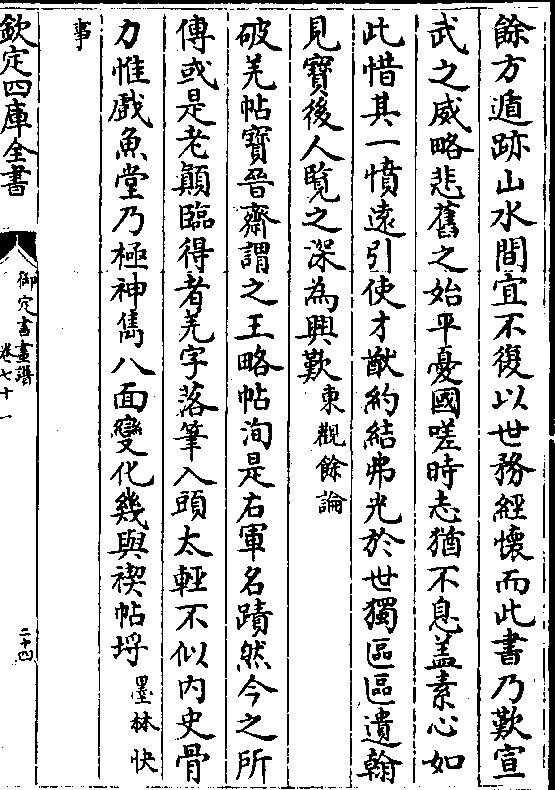 餘方遁跡山水間宜不復以世務經懷而此書乃歎宣
武之威略悲舊之始平憂國嗟時志猶不息盖素心如
此惜其一憤遠引使才猷約結弗光於世獨區區遺翰
見寶後人覧之深為興歎東觀餘論
破羌帖寶晉齋謂之王略帖洵是右軍名蹟然今之所
傳或是老顛臨得者羌字落筆入頭太輕不似内史骨
力惟戲魚堂乃極神雋八面變化幾與禊帖埒墨林快
事
欽定四庫全書
御定書畫譜
卷七十一
二十四